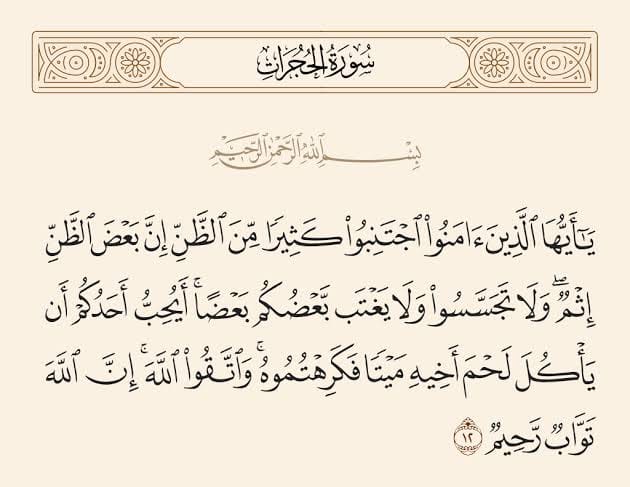 سُورَةُ الحُجُرَاتِ
بِسْمِ ٱللَّهِ ٱلرَّحْمَٰنِ ٱلرَّحِيمِ
يَـٰٓأَيُّهَا ٱلَّذِينَ ءَامَنُوا۟ ٱجْتَنِبُوا۟ كَثِيرًا مِّنَ ٱلظَّنِّ إِنَّ بَعْضَ ٱلظَّنِّ
إِثْمٌ ۖ وَلَا تَجَسَّسُوا۟ وَلَا يَغْتَب بَّعْضُكُم بَعْضًا ۚ أَيُحِبُّ أَحَدُكُمْ أَن
يَأْكُلَ لَحْمَ أَخِيهِ مَيْتًا فَكَرِهْتُمُوهُ ۚ وَٱتَّقُوا۟ ٱللَّهَ ۚ إِنَّ ٱللَّهَ
تَوَّابٌ رَّحِيمٌ ١٢